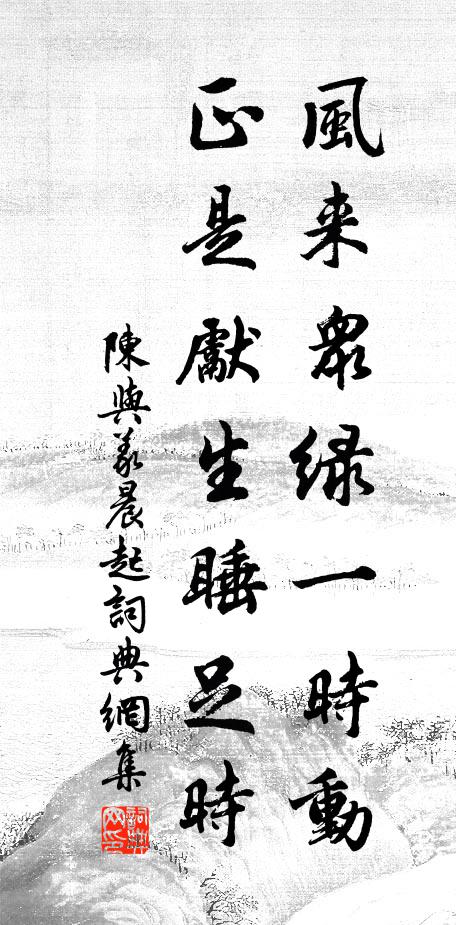 風来眾緑一時動
正是獻生睡足時
陳與義晨起詞典網集